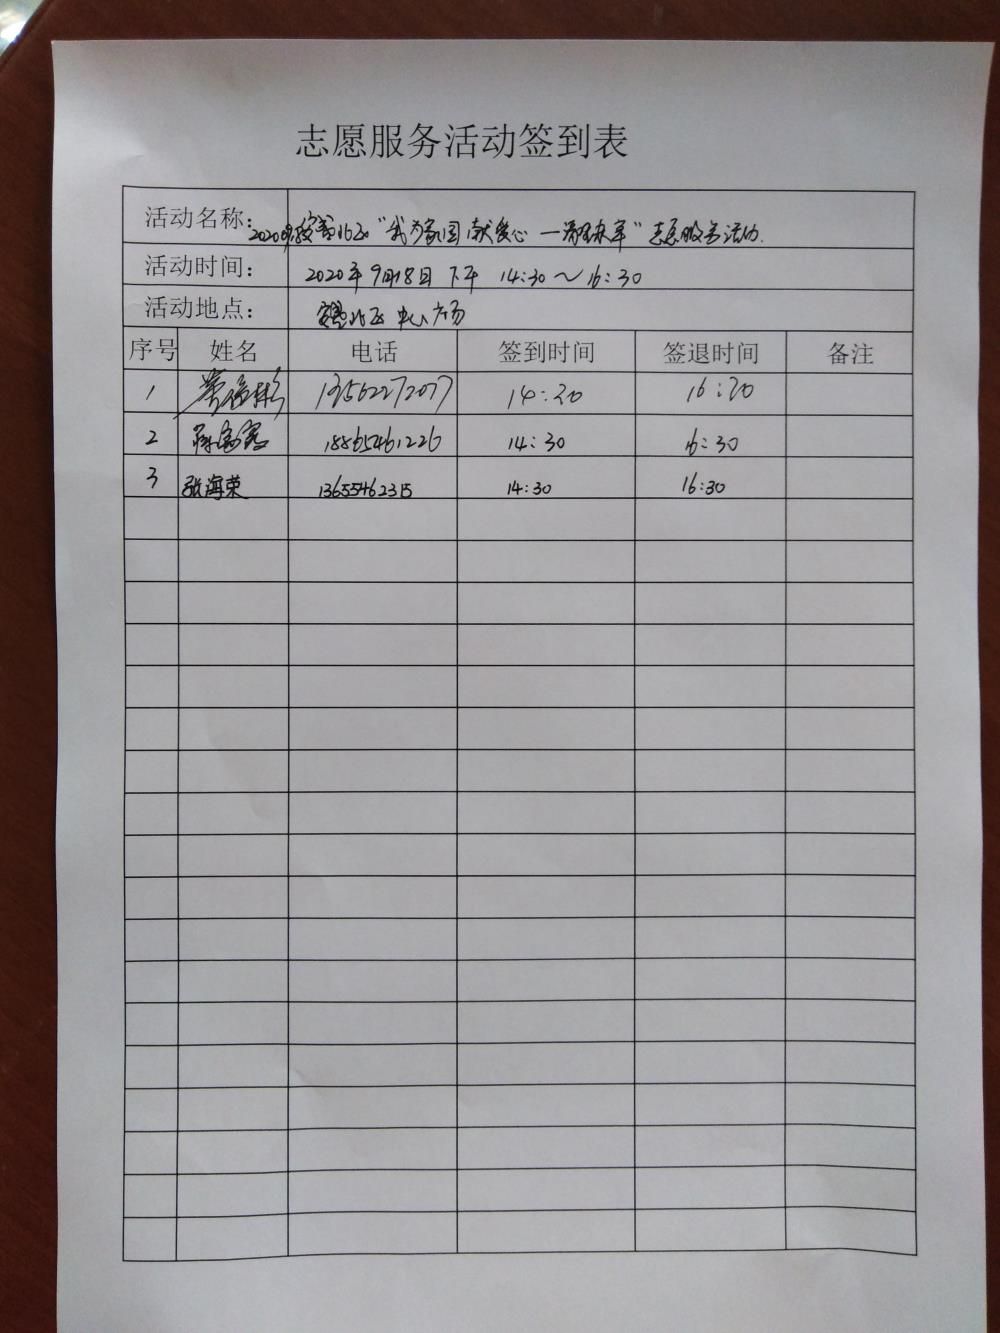 志愿服务活动签到表
活动名称：
"我为家园献爱心 志愿服务活动.
活动时间： 2020年9月18日 下午 14:30～16:30
活动地点： 中心广场
序号 姓名 电话 签到时间 签退时间 备注
1 13562272077 14:30 16:30
2 18865461226 14:30 16:30
3 张海荣 13655462315 14:30 16:30